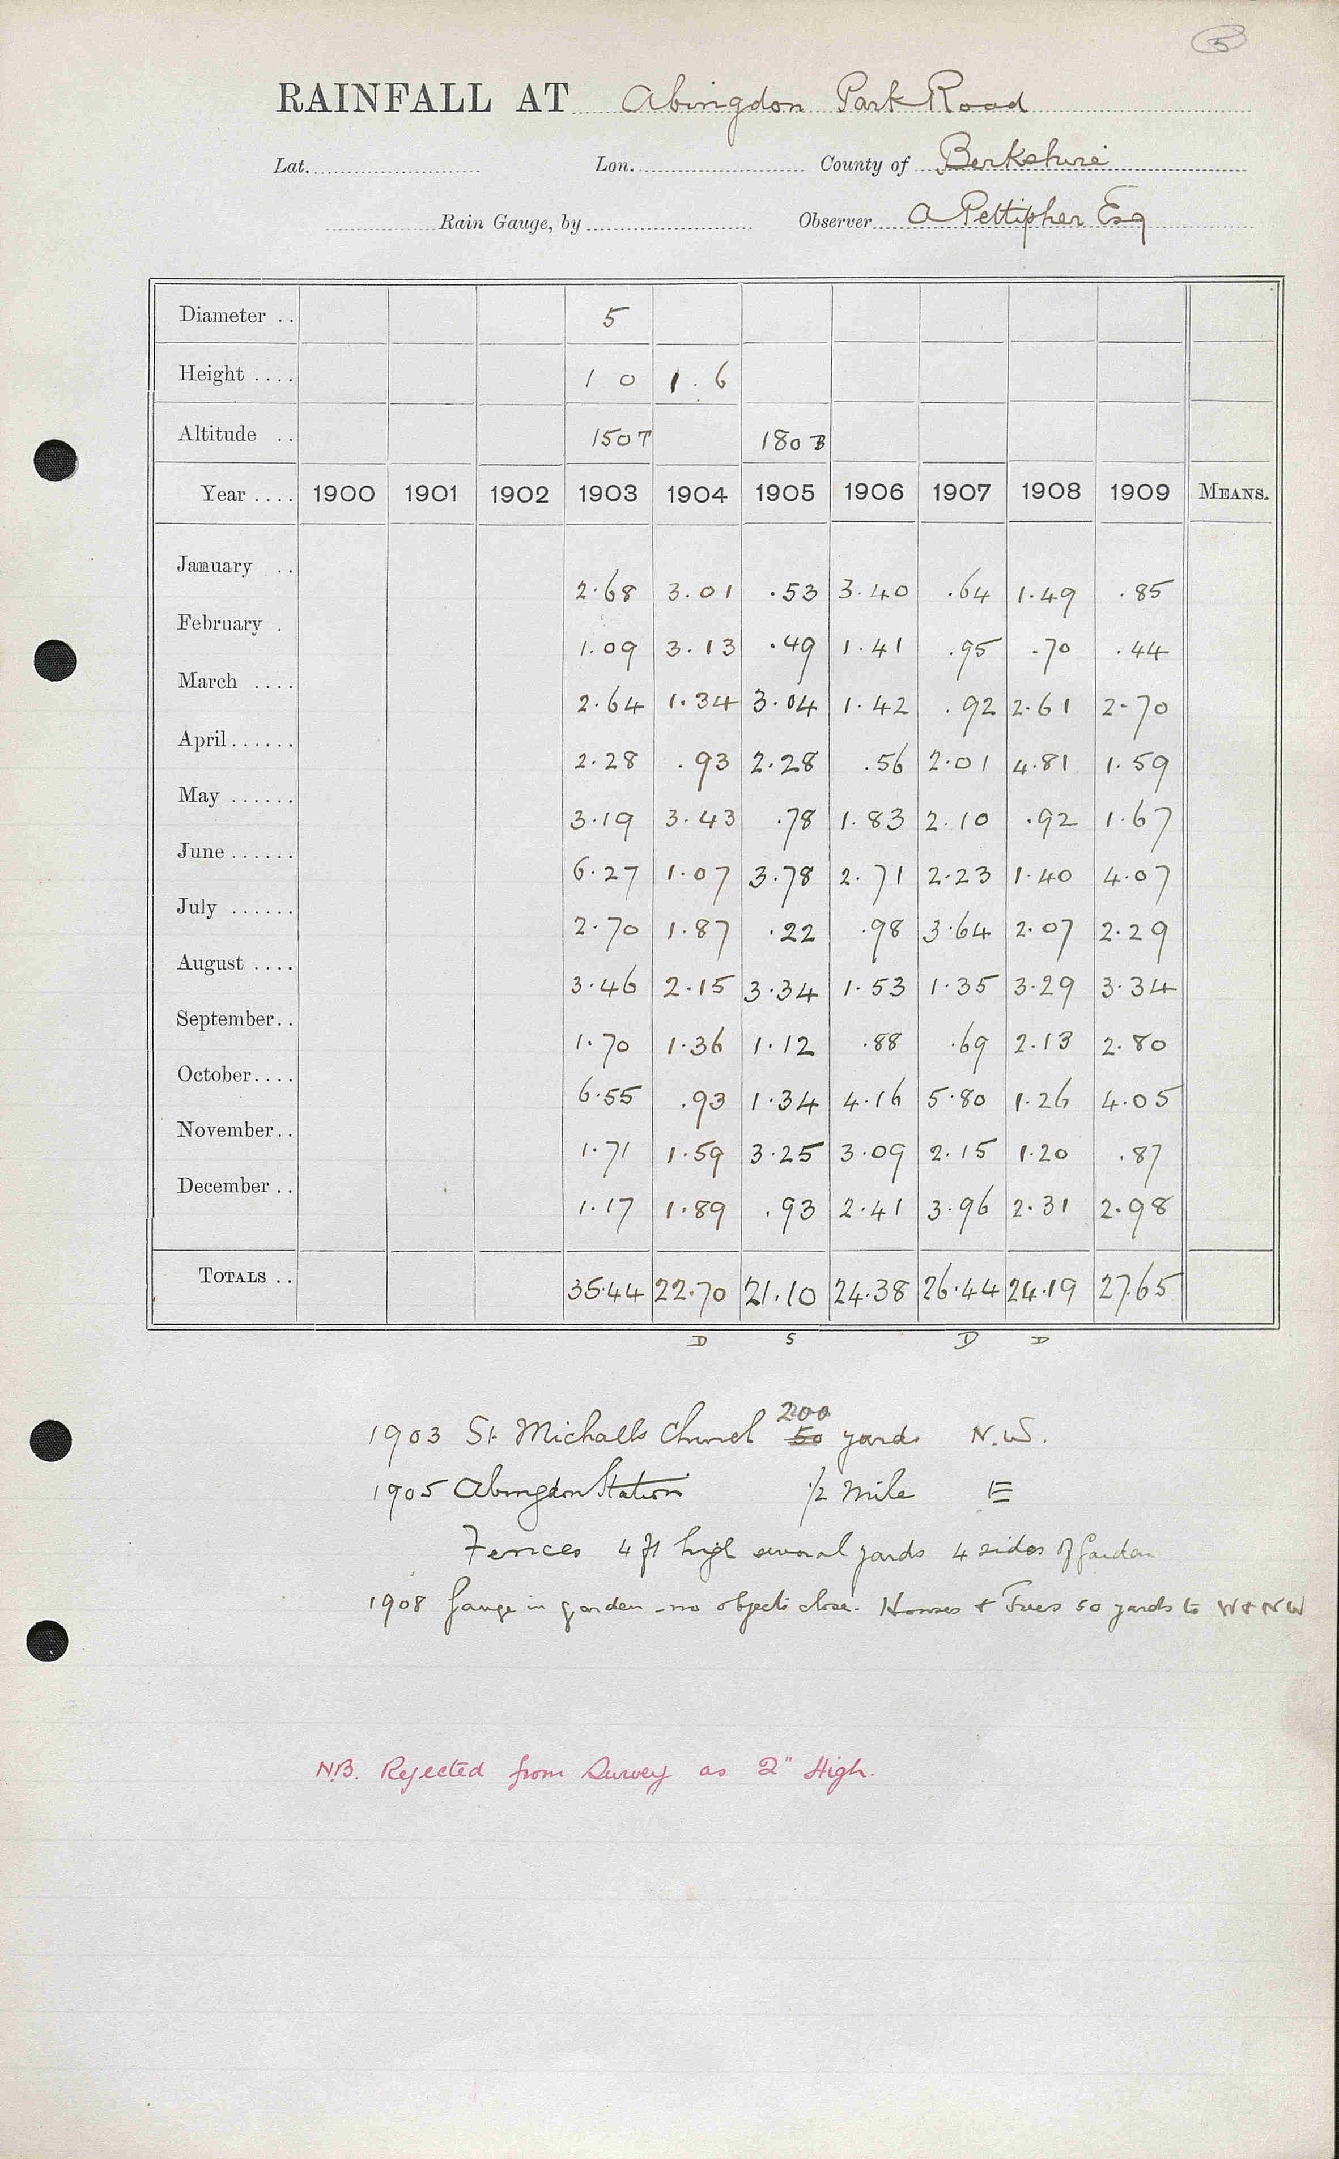 5
RAINFALL AT Abingdon Park Road
Lat. Lon. County of Berkshire
Rain Gauge, by Observer A Pettipher Esq
Diameter .. 5
Height .... 1 0 1.6
Altitude .. 150T 180B
Year .... 1900 1901 1902 1903 1904 1905 1906 1907 1908 1909 MEANS.
January .. 2.68 3.01 .53 3.40 .64 1.49 .85
February . 1.09 3.13 .49 1.41 .95 .70 .44
March .... 2.64 1.34 3.04 1.42 .92 2.61 2.70
April...... 2.28 .93 2.28 .56 2.01 4.81 1.59
May ...... 3.19 3.43 .78 1.83 2.10 .92 1.67
June...... 6.27 1.07 3.78 2.71 2.23 1.40 4.07
July ...... 2.70 1.87 .22 .98 3.64 2.07 2.29
August .... 3.46 2.15 3.34 1.53 1.35 3.29 3.34
September.. 1.70 1.36 1.12 .88 .69 2.13 2.80
October.... 6.55 .93 1.34 4.16 5.80 1.26 4.05
November.. 1.71 1.59 3.25 3.09 2.15 1.20 .87
December .. 1.17 1.89 .93 2.41 3.96 2.31 2.98
TOTALS .. 35.44 22.70 21.10 24.38 26.44 24.19 27.65
D S D D
200
1903 St Michaels Church 50 yards N.W.
1905 Abingdon Station 1/2 mile E
Fences 4 ft high several yards 4 sides of Garden
1908 Gauge in garden - no objects close. Houses & Trees 50 yards to W & NW
N.B. Rejected from Survey as 2" High.